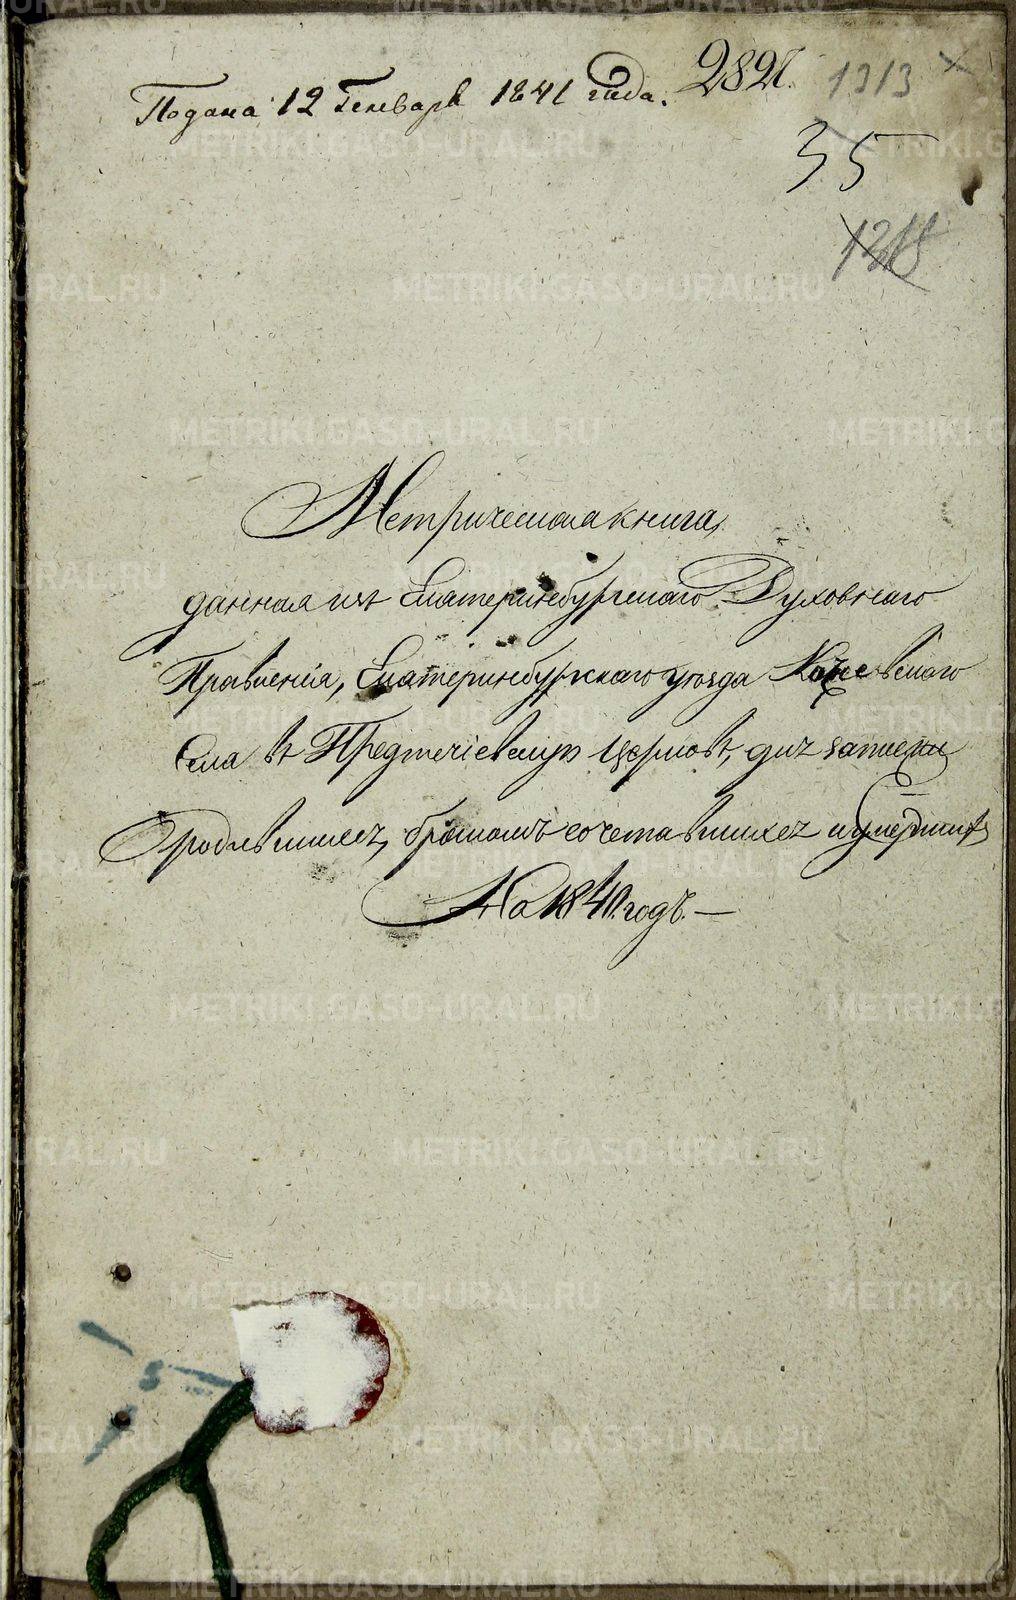 Подана 12 Генваря 1841 года.
2827.
1313
35
1318
Метрическая книга,
данная изъ Екатеринбургскаго Духовнаго
Правленія, Екатеринбургскаго уѣзда
села въ Предтечіевскую церковь, для записки
родившихся, бракомъ сочетавшихся и умершихъ
На 1840. годъ. —
5
METRIKI.GASO-URAL.RU